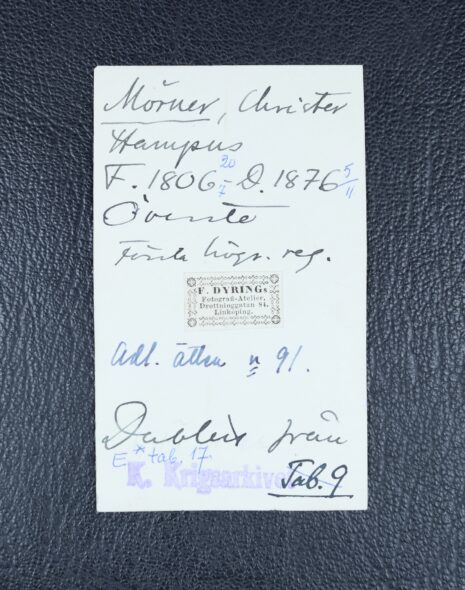 Mörner, Christer
Hampus
F. 1806 20/7 - D. 1876 5/11
Överste
Första högv. reg.
F. DYRINGs
Fotografi-Atelier,
Drottninggatan 84,
Linköping.
Adl. ätten n 91.
Dublett från
E* tab. 17.
K. Krigsarkivet
Tab. 9